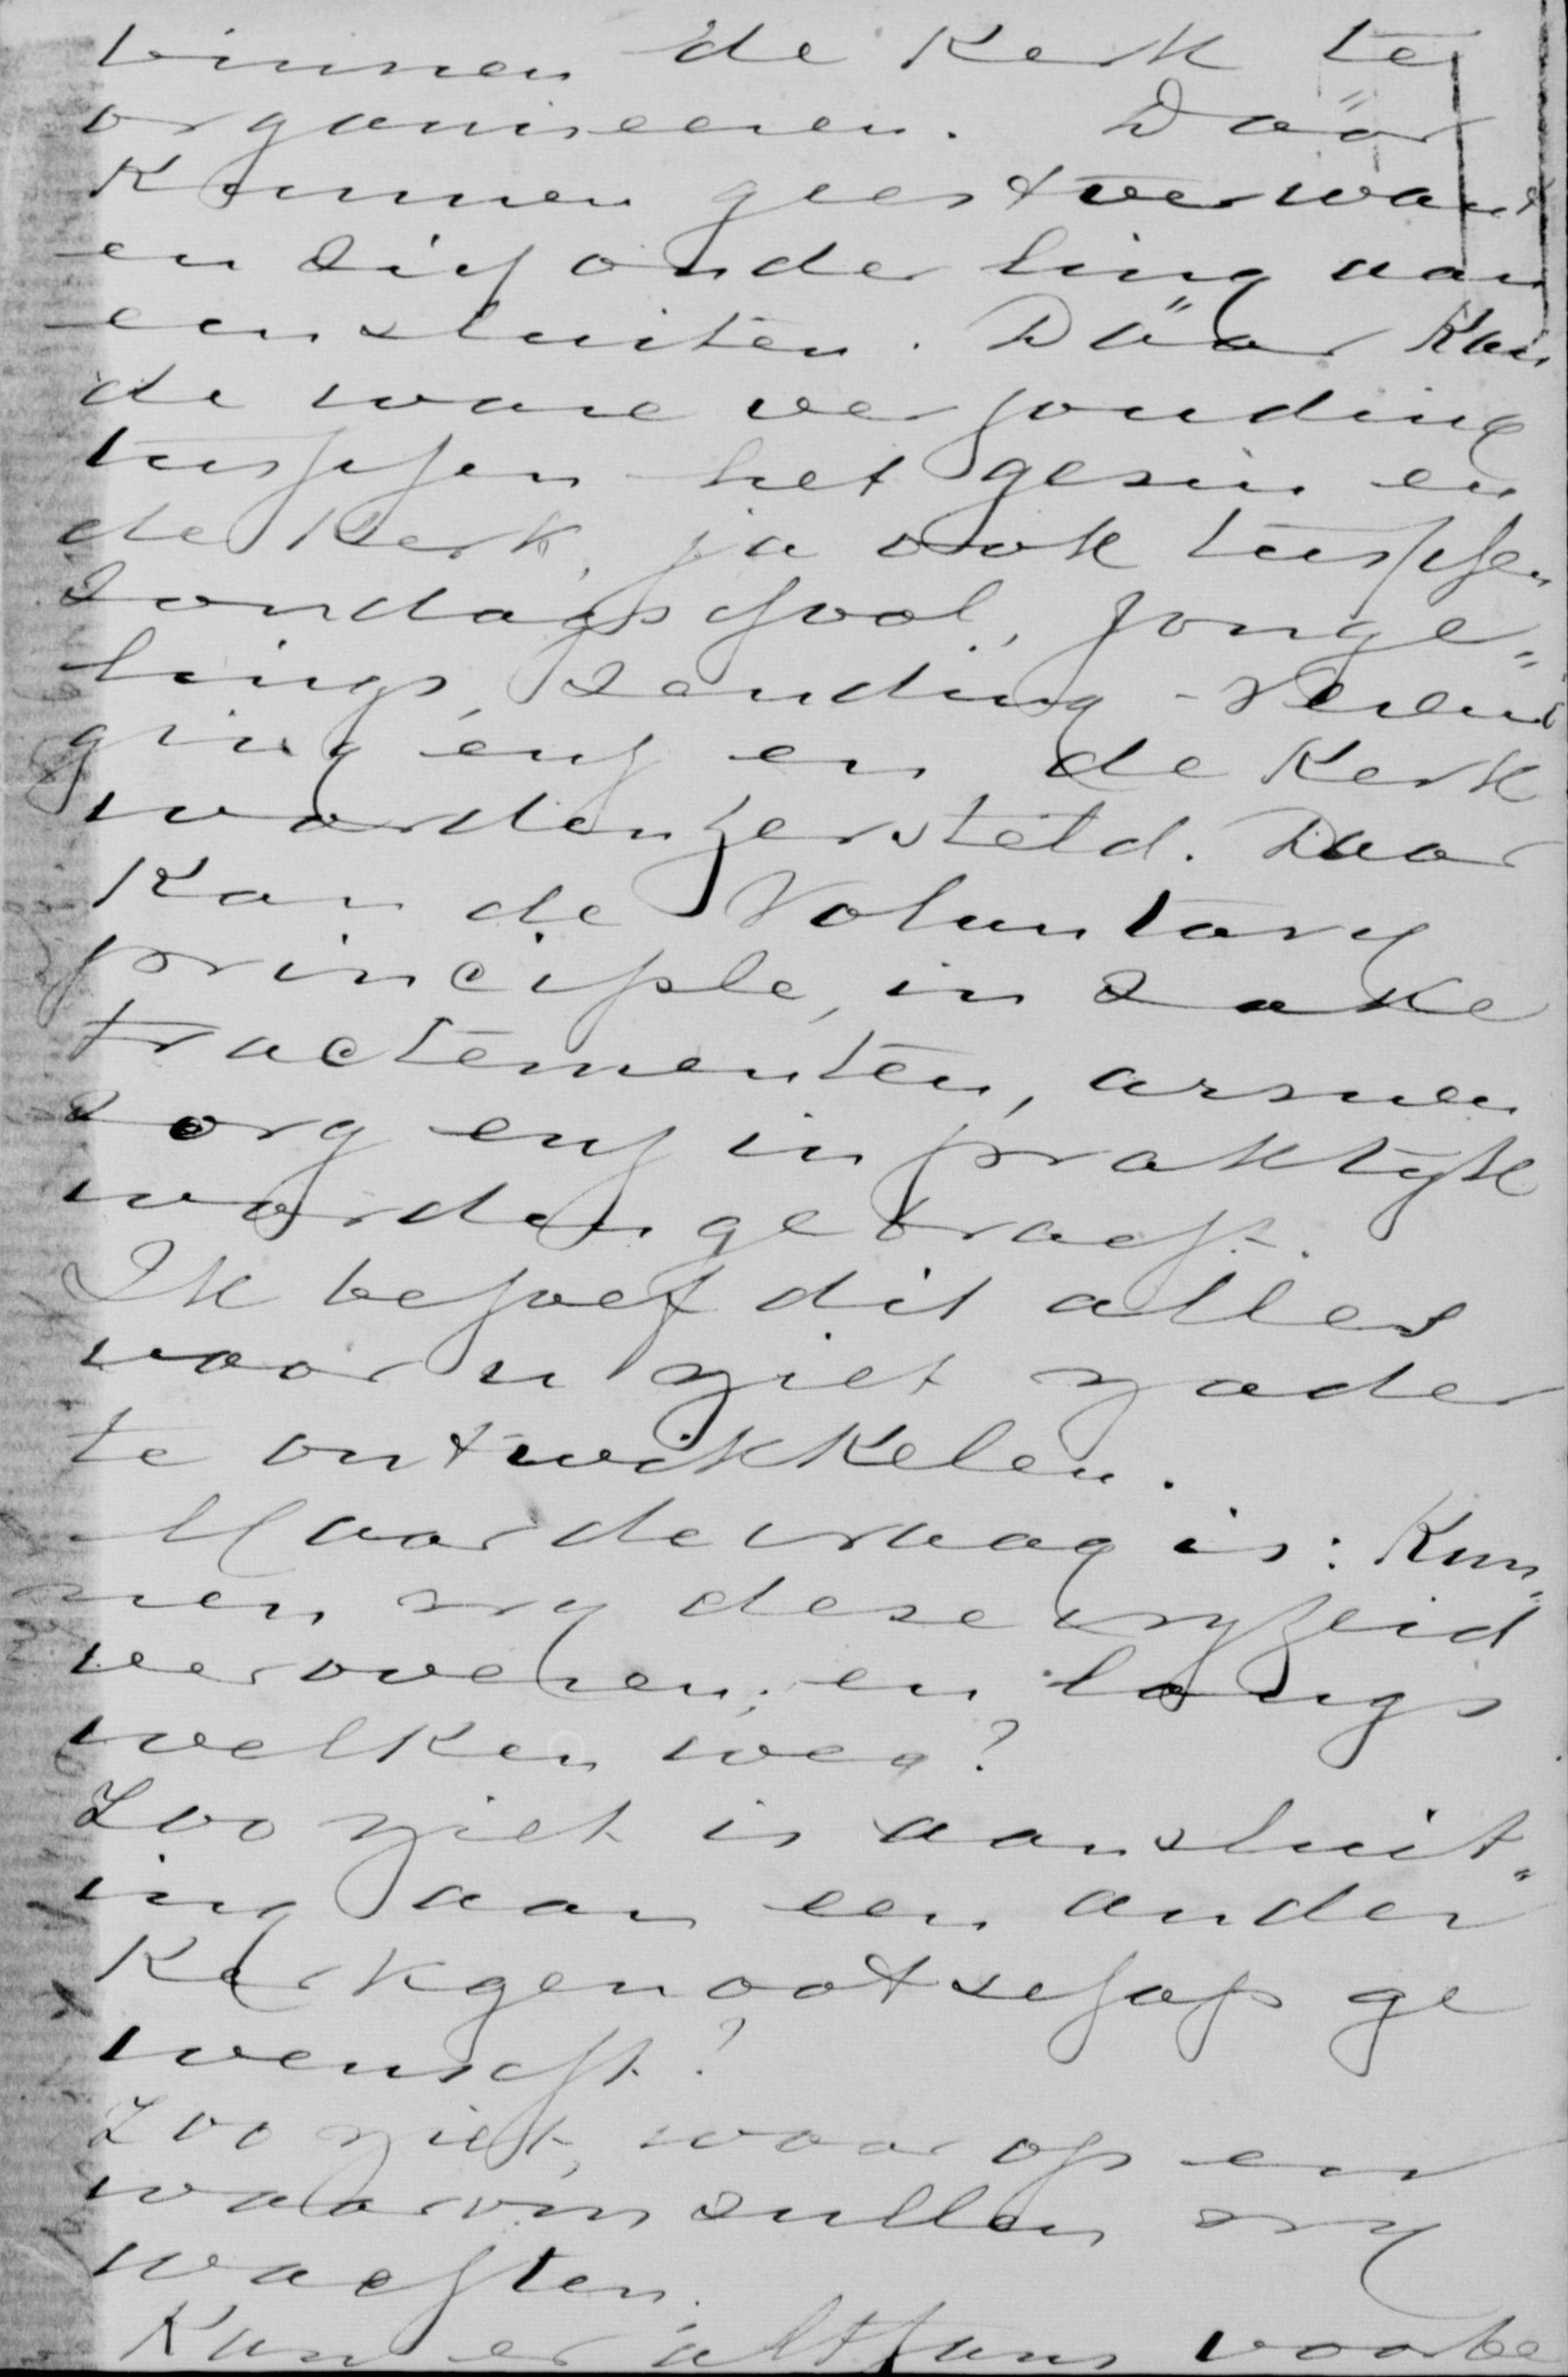 binnen de Kerk te
organiseeren. Dáár
Kunnen geestverwant
en zich onderling aan
een sluiten. Dáár Kan
de ware verhouding
tusschen het gezin en
de Kerk, ja ook tusschen
Zondagschool, Jonge„
lings, Zending-Vereeni
ging enz en de Kerk
worden hersteld. Daar
Kan de Voluntary
principle, in zake
tractementen, armen
zorg enz in praktijk
worden gebracht.
Ik behoef dit alles
voor u niet nader
te ontwikkelen.
Maar de vraag is: Kun„
nen wij deze vrijheid
veroveren; en langs
welken weg?
Zoo niet is aansluit„
ing aan een ander
Kerkgenootschap ge
wenscht?
Zoo niet, waarop en
waarom zullen wij
wachten.
Kan er althans voorbe